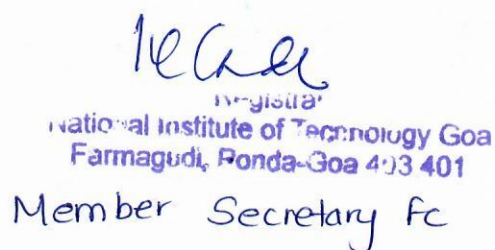 Registrar
National Institute of Technology Goa
Farmagudi, Ponda-Goa 403 401
Member Secretary FC